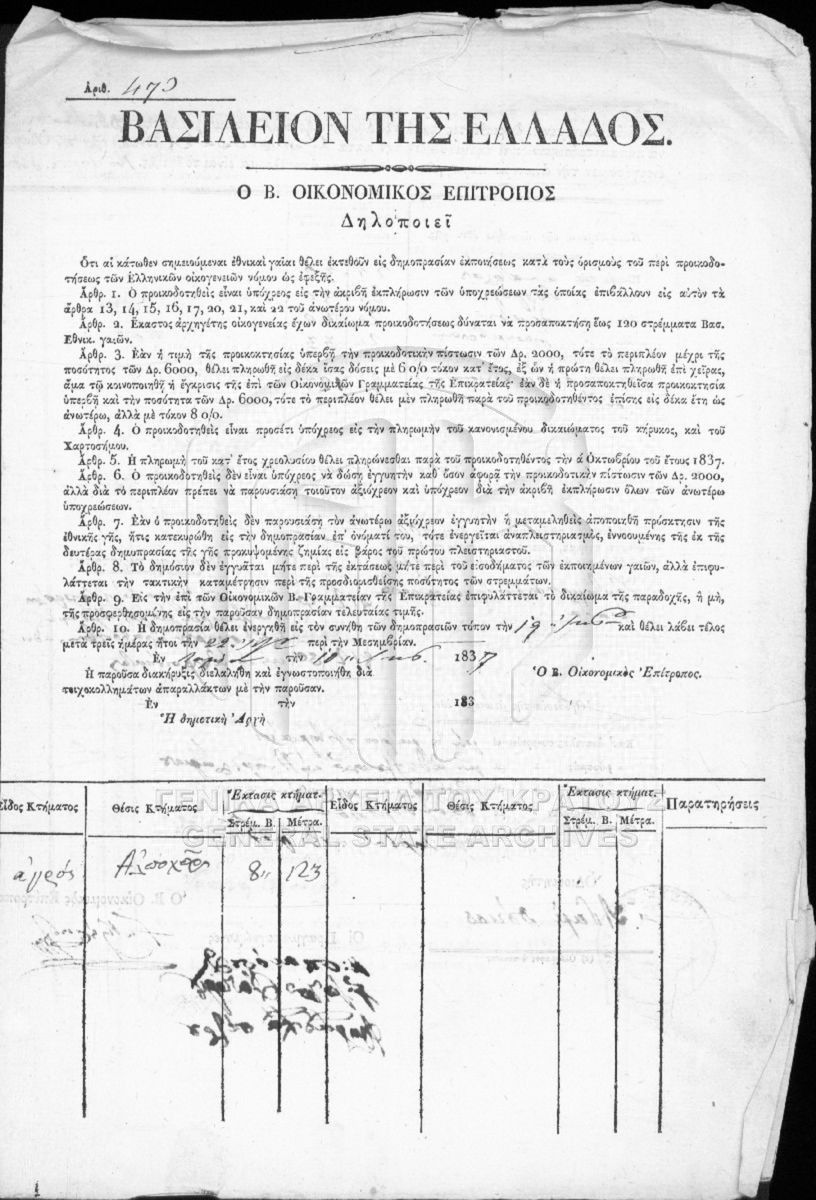 Ἀριθ. 473
ΒΑΣΙΛΕΙΟΝ ΤΗΣ ΕΛΛΑΔΟΣ.
Ο Β. ΟΙΚΟΝΟΜΙΚΟΣ ΕΠΙΤΡΟΠΟΣ
Δηλοποιεῖ
Ὅτι αἱ κάτωθεν σημειούμεναι ἐθνικαὶ γαῖαι θέλει ἐκτεθοῦν εἰς δημοπρασίαν ἐκποιήσεως κατὰ τοὺς ὁρισμοὺς τοῦ περὶ προικοδο-
τήσεως τῶν Ἑλληνικῶν οἰκογενειῶν νόμου ὡς ἐφεξῆς.
Ἄρθρ. 1. Ὁ προικοδοτηθεὶς εἶναι ὑπόχρεος εἰς τὴν ἀκριβῆ ἐκπλήρωσιν τῶν ὑποχρεώσεων τὰς ὁποίας ἐπιβάλλουν εἰς αὐτὸν τὰ
ἄρθρα 13, 14, 15, 16, 17, 20, 21, καὶ 22 τοῦ ἀνωτέρου νόμου.
Ἄρθρ. 2. Ἕκαστος ἀρχηγέτης οἰκογενείας ἔχων δικαίωμα προικοδοτήσεως δύναται νὰ προσαποκτήσῃ ἕως 120 στρέμματα Βασ.
Ἐθνικ. γαιῶν.
Ἄρθρ. 3. Ἐὰν ἡ τιμὴ τῆς προικοκτησίας ὑπερβῇ τὴν προικοδοτικὴν πίστωσιν τῶν Δρ. 2000, τότε τὸ περιπλέον μέχρι τῆς
ποσότητος τῶν Δρ. 6000, θέλει πληρωθῇ εἰς δέκα ἴσας δόσεις μὲ 6 0/0 τόκον κατ' ἔτος, ἐξ ὧν ἡ πρώτη θέλει πληρωθῆ ἐπὶ χεῖρας,
ἅμα τῷ κοινοποιηθῇ ἡ ἔγκρισις τῆς ἐπὶ τῶν Οἰκονομικῶν Γραμματείας τῆς Ἐπικρατείας· ἐὰν δὲ ἡ προσαποκτηθεῖσα προικοκτησία
ὑπερβῇ καὶ τὴν ποσότητα τῶν Δρ. 6000, τότε τὸ περιπλέον θέλει μὲν πληρωθῆ παρὰ τοῦ προικοδοτηθέντος ἐπίσης εἰς δέκα ἔτη ὡς
ἀνωτέρω, ἀλλὰ μὲ τόκον 8 0/0.
Ἄρθρ. 4. Ὁ προικοδοτηθεὶς εἶναι προσέτι ὑπόχρεος εἰς τὴν πληρωμὴν τοῦ κανονισμένου δικαιώματος τοῦ κήρυκος, καὶ τοῦ
Χαρτοσήμου.
Ἄρθρ. 5. Ἡ πληρωμὴ τοῦ κατ' ἔτος χρεολυσίου θέλει πληρώνεσθαι παρὰ τοῦ προικοδοτηθέντος τὴν ά Ὀκτωβρίου τοῦ ἔτους 1837.
Ἄρθρ. 6. Ὁ προικοδοτηθεὶς δὲν εἶναι ὑπόχρεος νὰ δώσῃ ἐγγυητὴν καθ' ὅσον ἀφορᾷ τὴν προικοδοτικὴν πίστωσιν τῶν Δρ. 2000,
ἀλλὰ διὰ τὸ περιπλέον πρέπει νὰ παρουσιάσῃ τοιοῦτον ἀξιόχρεον καὶ ὑπόχρεον διὰ τὴν ἀκριβῆ ἐκπλήρωσιν ὅλων τῶν ἀνωτέρω
ὑποχρεώσεων.
Ἄρθρ. 7. Ἐὰν ὁ προικοδοτηθεὶς δὲν παρουσιάσῃ τὸν ἀνωτέρω ἀξιόχρεον ἐγγυητὴν ἢ μεταμεληθεὶς ἀποποιηθῇ τὴν πρόσκτησιν τῆς
ἐθνικῆς γῆς, ἥτις κατεκυρώθη εἰς τὴν δημοπρασίαν ἐπ' ὀνόματί του, τότε ἐνεργεῖται ἀναπλειστηριασμὸς, ἐννοουμένης τῆς ἐκ τῆς
δευτέρας δημοπρασίας τῆς γῆς προκυψομένης ζημίας εἰς βάρος τοῦ πρώτου πλειστηριαστοῦ.
Ἄρθρ. 8. Τὸ δημόσιον δὲν ἐγγυᾶται μήτε περὶ τῆς ἐκτάσεως μήτε περὶ τοῦ εἰσοδήματος τῶν ἐκποιημένων γαιῶν, ἀλλὰ ἐπιφυ-
λάττεται τὴν τακτικὴν καταμέτρησιν περὶ τῆς προσδιορισθείσης ποσότητος τῶν στρεμμάτων.
Ἄρθρ. 9. Εἰς τὴν ἐπὶ τῶν Οἰκονομικῶν Β. Γραμματείαν τῆς Ἐπικρατείας ἐπιφυλάττεται τὸ δικαίωμα τῆς παραδοχῆς, ἢ μὴ,
τῆς προσφερθησομένης εἰς τὴν παροῦσαν δημοπρασίαν τελευταίας τιμῆς.
Ἄρθρ. 10. Ἡ δημοπρασία θέλει ἐνεργηθῆ εἰς τὸν συνήθη τῶν δημοπρασιῶν τόπον τὴν 19 καὶ θέλει λάβει τέλος
μετὰ τρεῖς ἡμέρας ἤτοι τὴν 22 περὶ τὴν Μεσημβρίαν.
Ἐν τὴν 10 1837
Ἡ παροῦσα διακήρυξις διελαλήθη καὶ ἐγνωστοποιήθη διὰ
τοιχοκολλημάτων ἀπαραλλάκτων μὲ τὴν παροῦσαν.
Ὁ Β. Οἰκονομικὸς Ἐπίτροπος.
Ἐν τὴν 183
Ἡ δημοτικὴ Ἀρχὴ
ΓΕΝΙΚΑ ΑΡΧΕΙΑ ΤΟΥ ΚΡΑΤΟΥΣ
GENERAL STATE ARCHIVES
Εἶδος Κτήματος Θέσις Κτήματος Ἔκτασις κτήματ. Εἶδος Κτήματος Θέσις Κτήματος Ἔκτασις κτήματ. Παρατηρήσεις
Στρέμ. Β. Μέτρα. Στρέμ. Β. Μέτρα.
ἀγρός 8 123